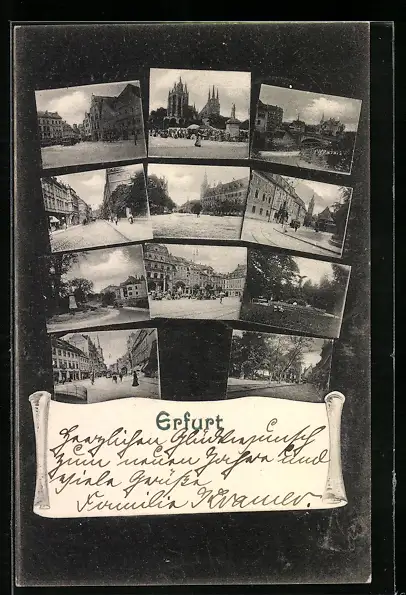 Erfurt
Herzlichen Glückwunsch
zum neuen Jahre und
viele Grüße
Familie Kramer.